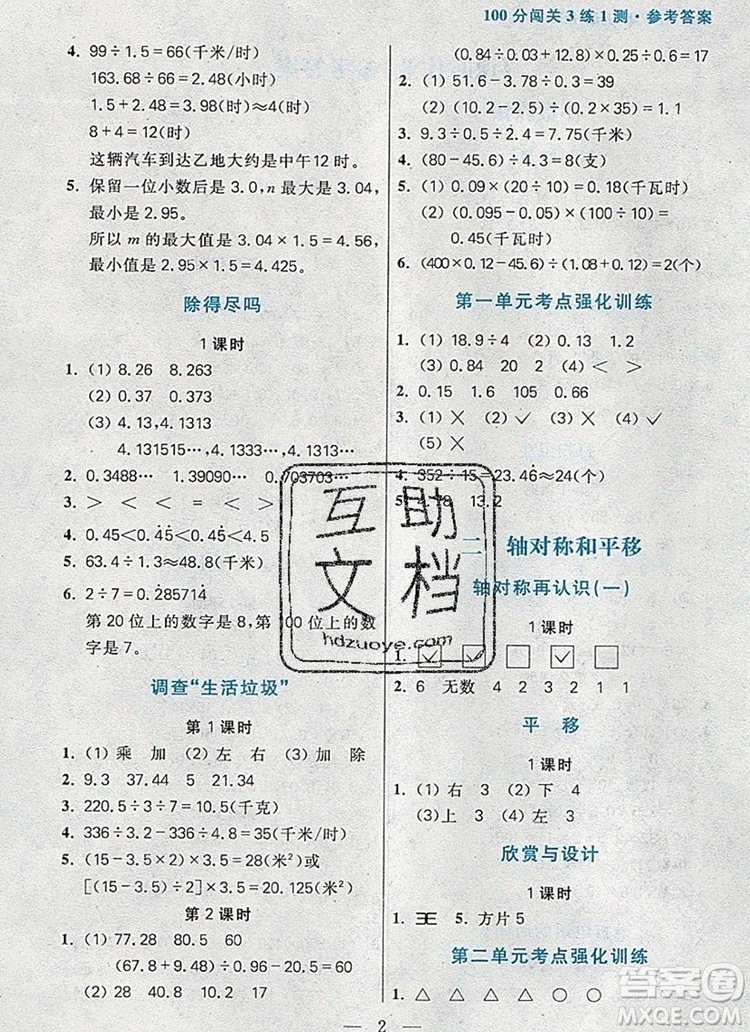 100分闯关3练1测·参考答案
4. 99÷1.5=66(千米/时)
163.68÷66=2.48(小时)
1.5+2.48=3.98(时)≈4(时)
8+4=12(时)
这辆汽车到达乙地大约是中午12时。
5. 保留一位小数后是3.0,n最大是3.04,
最小是2.95。
所以m的最大值是3.04×1.5=4.56,
最小值是2.95×1.5=4.425。
除得尽吗
1课时
1. (1) 8.26 8.263
(2) 0.37 0.373
(3) 4.13,4.1313
4.131515…,4.1333…,4.1313…
2. 0.3488… 1.39090… 0.703703…
3. > < < = < >
4. 0.45<0.45<0.45<0.45
5. 63.4÷1.3≈48.8(千米)
6. 2÷7=0.2̇85714̇
第20位上的数字是8,第100位上的数
字是7。
调查“生活垃圾”
第1课时
1. (1)乘 加 (2)左 右 (3)加 除
2. 9.3 37.44 5 21.34
3. 220.5÷3÷7=10.5(千克)
4. 336÷3.2-336÷4.8=35(千米/时)
5. (15-3.5)×3.5÷2=20.125(米²)或
[(15-3.5)÷2]×3.5=20.125(米²)
第2课时
1. (1) 77.28 80.55 60
(67.8+9.48)÷(0.96+0.33)=60
(2) 48 0.87 0.15 0.6
(0.84+0.03)÷(0.12+0.03)=5.8
2. (1) 51.6-3.78÷0.3=39
(2) (10.2-2.5)÷(0.2×35)=1.1
3. 9.3÷0.5÷2.4=7.75(千米)
4. (80-45.6)÷4.3=8(支)
5. (1) 0.09×(20÷10)=0.18(千瓦时)
(2) (0.095-0.05)×(100÷10)=
0.45(千瓦时)
6. (400×0.12-45.6)÷(1.08+0.12)=2(个)
第一单元考点强化训练
1. (1) 18.9÷4 (2) 0.13 1.2
(3) 0.84 20 2 (4) >
2. 0.15 1.6 105 0.66
3. (1)× (2)✓ (3)✓ (4)×
(5)×
4. 352÷15=23.46̇≈24(个)
5. 4.78 13.2
二 轴对称和平移
轴对称再认识(一)
1课时
1. ☑ ☑ □ ☑ □
2. 6 无数 4 2 3 2 1 1
平 移
1课时
1. (1)右 3 (2)下 4
(3)上 3 (4)左 3
欣赏与设计
1课时
1. 王 5. 方片5
第二单元考点强化训练
1. △ △ △ △ △ ○
— 2 —
互助文档
hdzuoye.com
答案圈
MXQE.COM